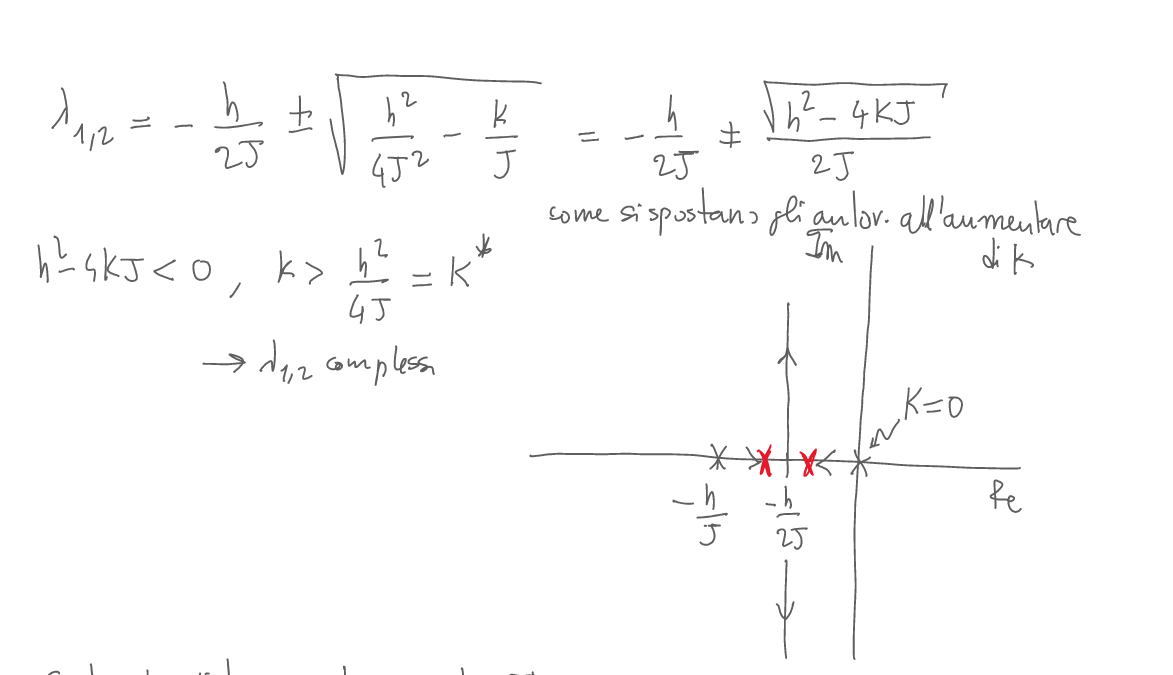 λ1,2 = - h/2J ± √(h²/4J² - k/J) = - h/2J ± √(h² - 4KJ)/2J
come si spostano gli autov. all'aumentare
di k
h² - 4KJ < 0, k > h²/4J = K*
→ λ1,2 complessi
Im
K=0
Re
-h/J
-h/2J